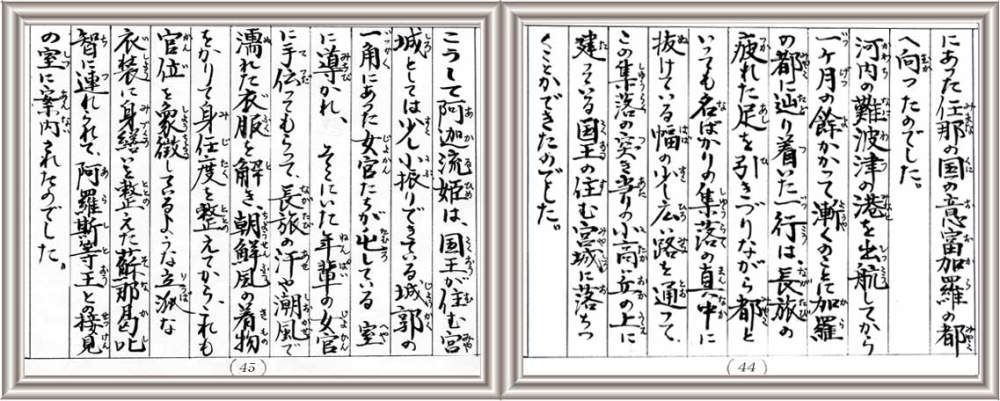 にあった任那の国の意富加羅の都
へ向ったのでした。
河内の難波津の港を出航してから
一ヶ月の餘かかって漸くのことに加羅
の都に辿り着いた一行は、長旅の
疲れた足を引きづりながら都と
いっても名ばかりの集落の真ん中に
抜けている幅の少し広い路を通って、
この集落の突き当りの小高い丘の上に
建っている国王の住む宮城に落ちつ
くことができたのでした。
(44)
こうして阿迦流姫は、国王が住む宮
城としては少し小振りでできている城郭の
一角にあった女官たちが屯している室
に導かれ、そこにいた年輩の女官
に手伝ってもらって、長旅の汗や潮風で
濡れた衣服を解き、朝鮮風の着物
をかりて身仕度を整えてから、これも
官位を象徴しているような立派な
衣装に身繕いを整えた蘇那曷叱
智に連れられて、阿羅斯等王との接見
の室に案内されたのでした。
(45)